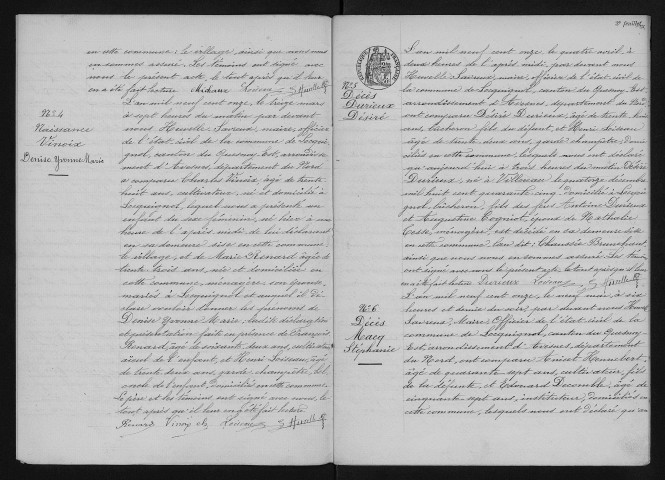 en cette commune : le village, ainsi que nous nous
en sommes assuré. Les témoins ont signé avec
nous le présent acte, le tout après qu'il leur
en a été fait lecture
N° 4
Naissance
Vinoix
Denise Yvonne Marie
L'an mil neuf cent onze, le treize mars
à sept heures du matin par devant
nous Herselle Saveur, maire, officier
de l'état civil de la commune de Locqui-
gnol, canton du Quesnoy-Est, arrondisse-
ment d'Avesnes, département du Nord
a comparu Charles Vinoix, âgé de trente
huit ans, cultivateur, né et domicilié à
Locquignol, lequel nous a présenté un
enfant du sexe féminin, né hier à une
heure de l'après midi, de lui déclarant
en sa demeure sise en cette commune
le village, et de Marie Renard âgée de
trente trois ans, née et domiciliée en
cette commune, ménagère, son épouse,
mariés à Locquignol et auquel il dé-
clare vouloir donner les prénoms de
Denise Yvonne Marie, lesdite déclaration
et présentation fait en présence de François
Renard, âgé de soixante deux ans, cultivateur
aïeul de l'enfant, et Henri Loiseau, âgé
de trente deux ans, garde champêtre,
de l'enfant, domiciliés en cette commune.
Le père et les témoins ont signé avec nous, le
tout après qu'il leur en a été fait lecture.
Renard Vinoix Ch. Loiseau
N° 5
Décès
Durieux
Désiré
L'an mil neuf cent onze, le quatre avril à
deux heures de l'après midi, par devant nous
Herselle Saveur, maire, officier de l'état civil de
la commune de Locquignol, canton du Quesnoy-Est,
arrondissement d'Avesnes, département du Nord,
ont comparu Désiré Durieux, âgé de trente huit
ans, bûcheron fils du défunt, et Henri Loiseau
âgé de trente deux ans, garde champêtre, domi-
ciliés en cette commune, lesquels nous ont déclaré
qu'aujourd'hui à trois heures du matin Désiré
Durieux, né à Villereau le quatorze décembre
mil huit cent quarante cinq, domicilié à Locqui-
gnol, bûcheron, fils des feus Antoine Durieux
et Augustine Cogniot, époux de Nathalie
Cesse, ménagère, est décédé en sa demeure sise
en cette commune, lieu dit : Chaussée Brunehaut
ainsi que nous nous en sommes assuré. Les témoins
ont signé avec nous le présent acte, le tout après qu'il leur
en a été fait lecture Durieux Loiseau
N° 6
Décès
Macq
Stéphanie
L'an mil neuf cent onze, le neuf mai à six
heures et demie du soir, par devant nous Herselle
Saveur, Maire, Officier de l'état civil de la
commune de Locquignol, canton du Quesnoy
Est, arrondissement d'Avesnes, département
du Nord, ont comparu Amiot Hannebert,
âgé de quarante sept ans, cultivateur, fils
de la défunte, et Edouard Decomble, âgé de
cinquante sept ans, instituteur, domiciliés en
cette commune, lesquels nous ont déclaré qu'au